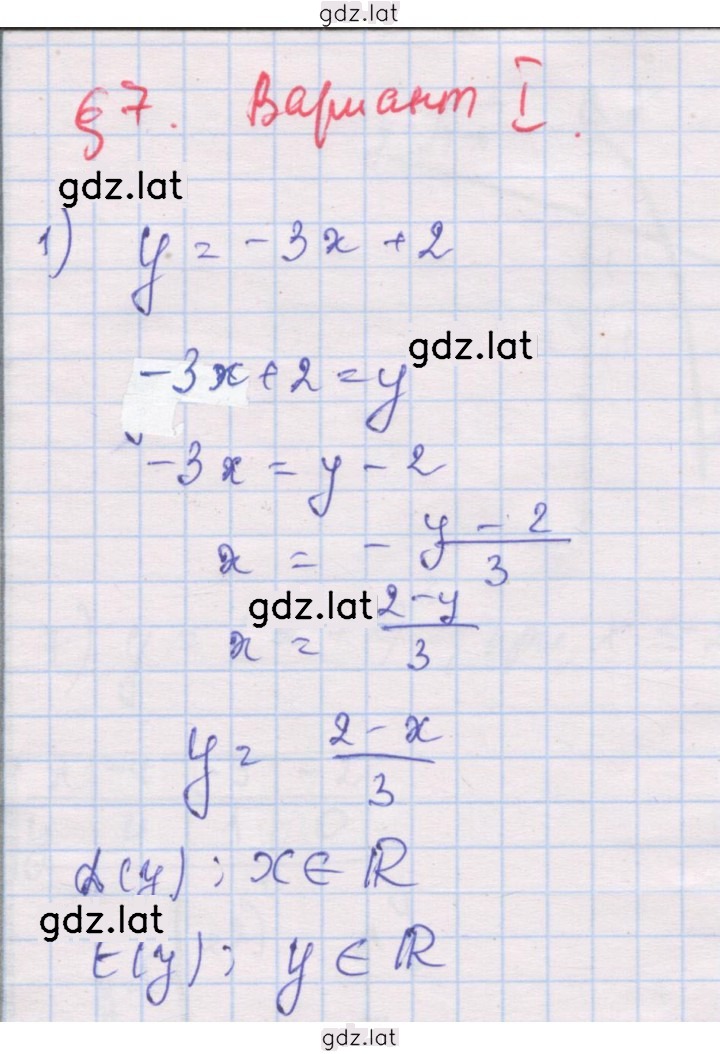 gdz.lat
§ 7. Вариант I.
gdz.lat
1) y = -3x + 2
gdz.lat
-3x + 2 = y
-3x = y - 2
x = - \frac{y - 2}{3}
gdz.lat
x = \frac{2 - y}{3}
y = \frac{2 - x}{3}
D(y): x ∈ ℝ
gdz.lat
E(y): y ∈ ℝ
gdz.lat